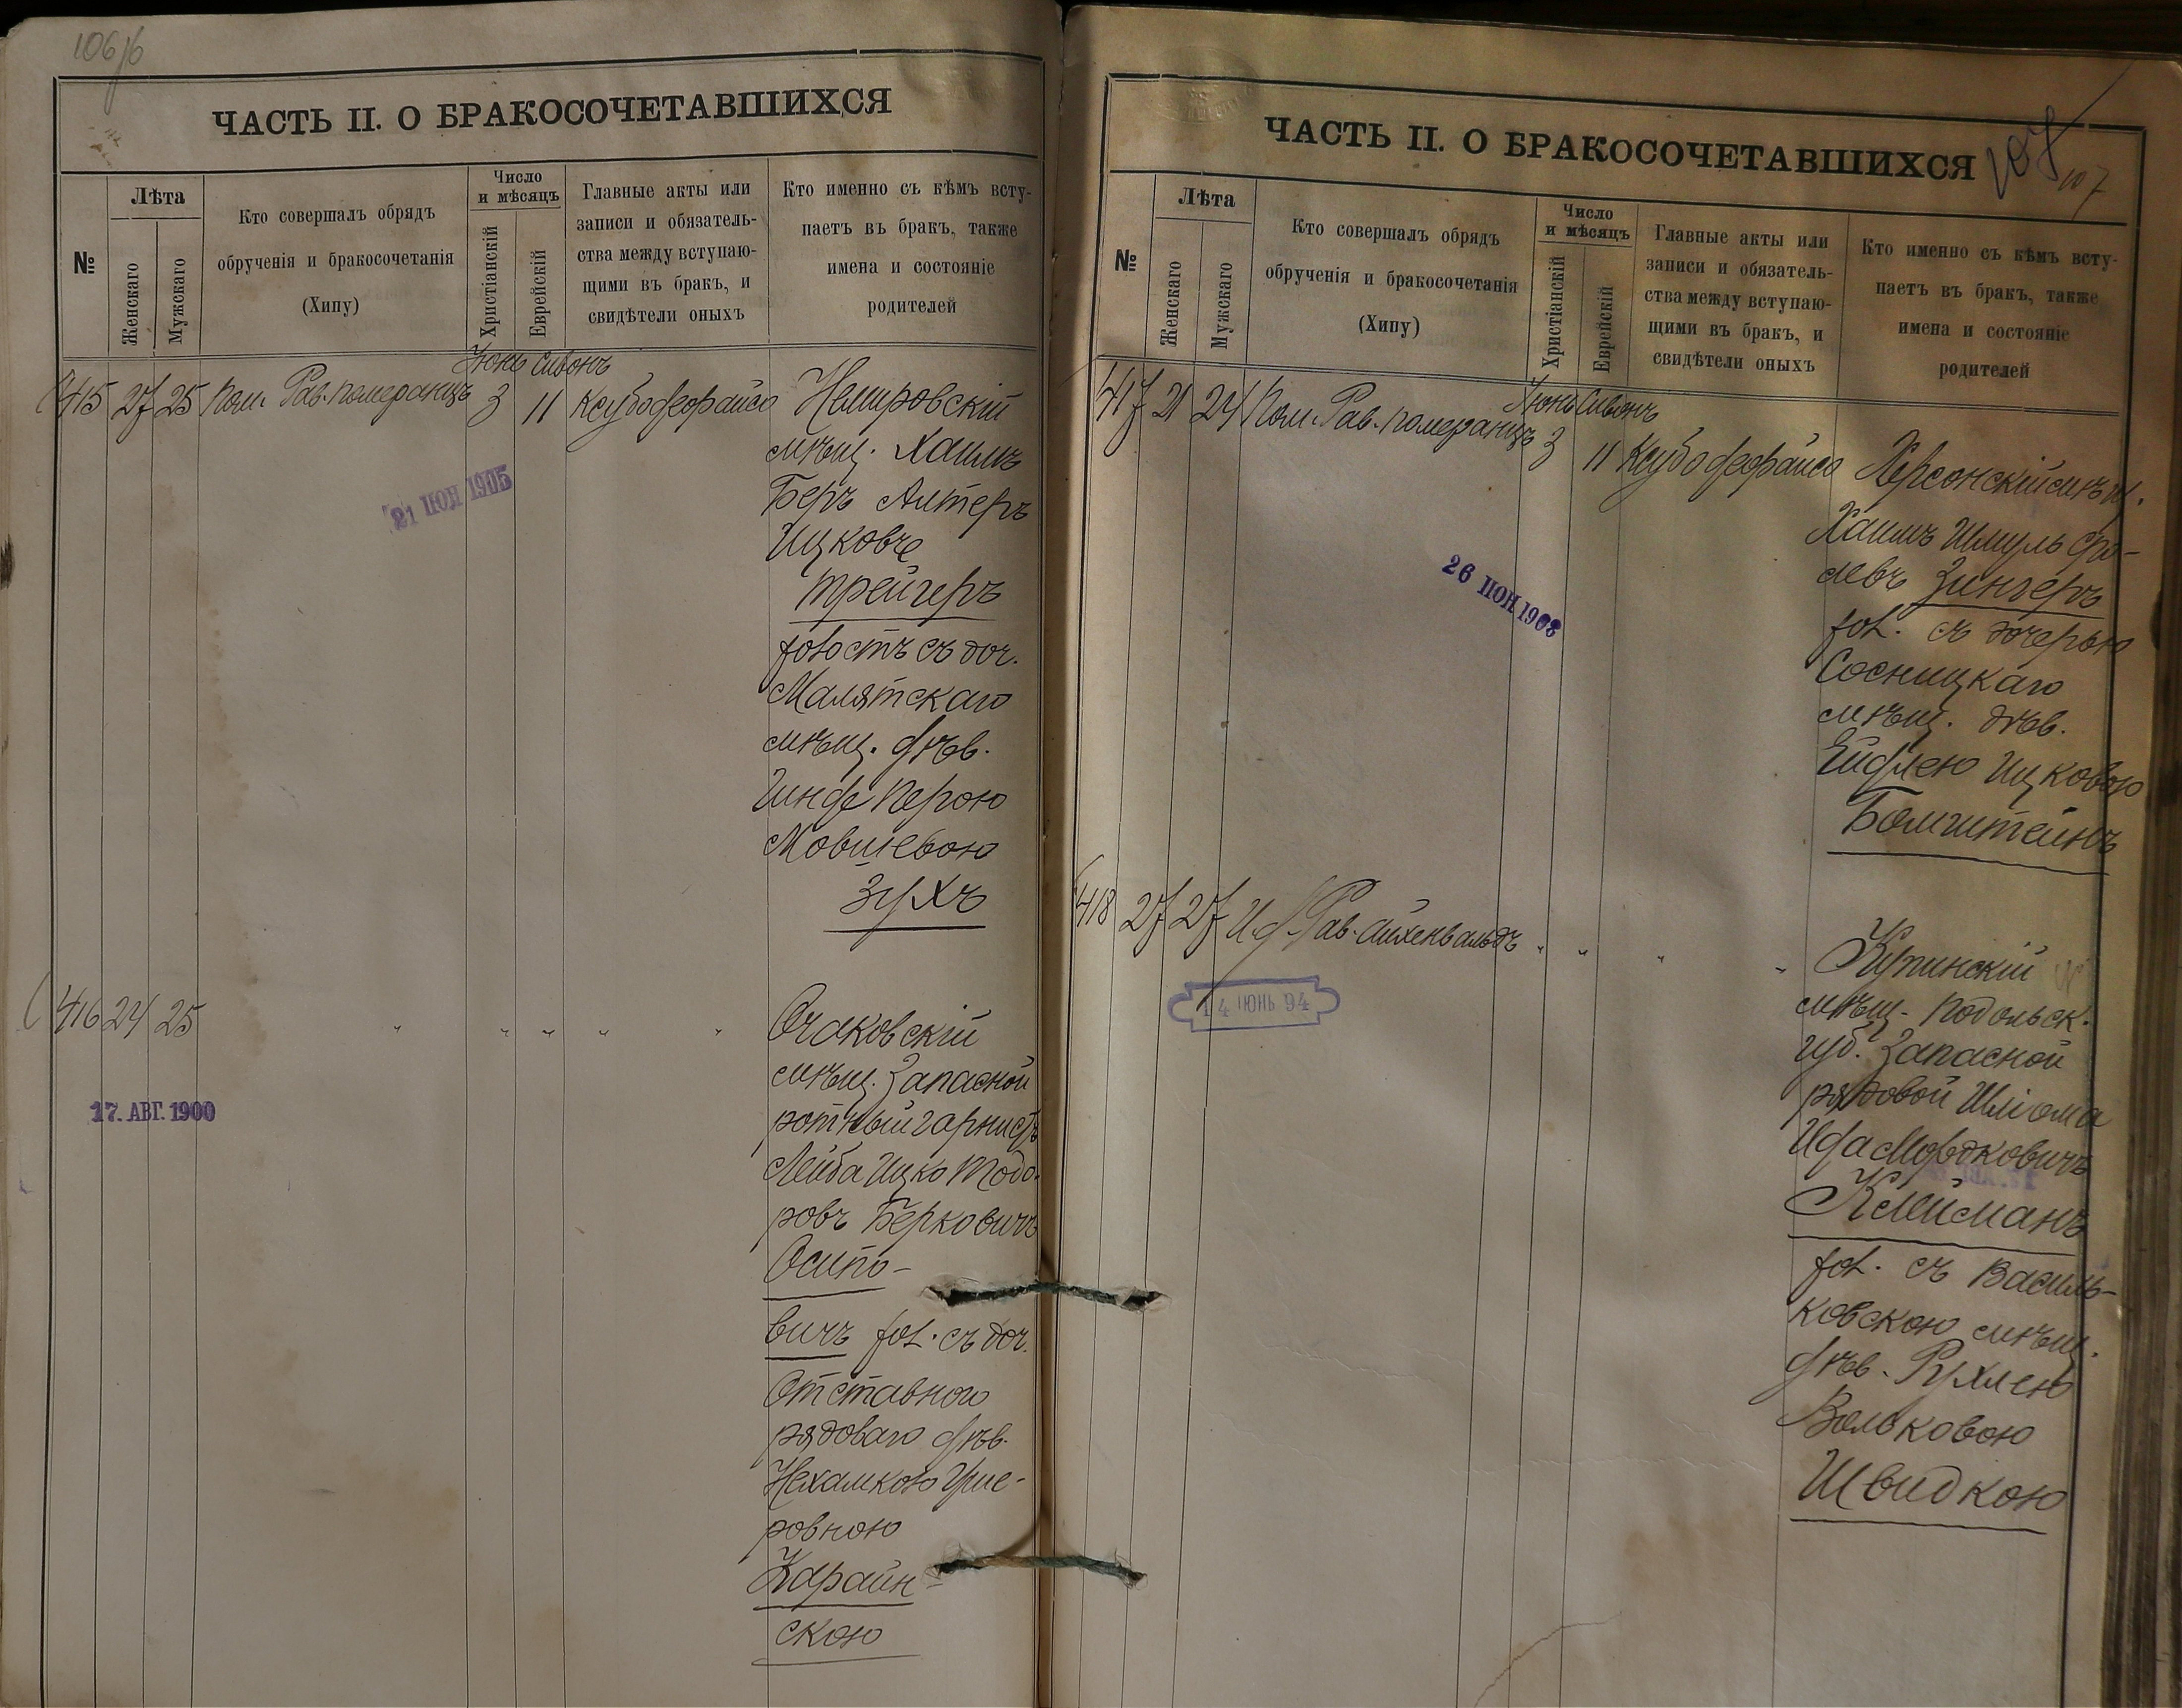 106/б
ЧАСТЬ II. О БРАКОСОЧЕТАВШИХСЯ
№
Лѣта
Женскаго
Мужскаго
Кто совершалъ обрядъ
обрученія и бракосочетанія
(Хипу)
Число
и мѣсяцъ
Христіанскій
Еврейскій
Главные акты или
записи и обязатель-
ства между вступаю-
щими въ бракъ, и
свидѣтели оныхъ
Кто именно съ кѣмъ всту-
паетъ въ бракъ, также
имена и состояніе
родителей
Іюнь Сивонъ
415 27 25 Пом. Рав. Померанцъ 3 11 Ксубо деорайсо
Немировскій
мѣщ. Хаимъ
Беръ Алтеръ
Ицковъ
Трейгеръ
холостъ съ доч.
Малятскаго
мѣщ. дѣв.
Гинде Перою
Мовшевою
Зухъ
21 ІЮН 1915
416 24 25 " " " " "
Очаковскій
мѣщ. Запасной
ротный горнистъ
Лейба Ицко Тодо-
ровъ Берковичъ
Осипо-
вичъ хол. съ доч.
Отставного
рядоваго дѣв.
Нехамкою Уше-
ровною
Карайн-
скою
17. АВГ. 1900
ЧАСТЬ II. О БРАКОСОЧЕТАВШИХСЯ
107
№
Лѣта
Женскаго
Мужскаго
Кто совершалъ обрядъ
обрученія и бракосочетанія
(Хипу)
Число
и мѣсяцъ
Христіанскій
Еврейскій
Главные акты или
записи и обязатель-
ства между вступаю-
щими въ бракъ, и
свидѣтели оныхъ
Кто именно съ кѣмъ всту-
паетъ въ бракъ, также
имена и состояніе
родителей
Іюнь Сивонъ
417 21 24 Пом. Рав. Померанцъ 3 11 Ксубо деорайсо
Херсонскій мѣщ.
Хаимъ Шмуль Сро-
левъ Зингеръ
хол. съ дочерью
Сосницкаго
мѣщ. дѣв.
Ейдлею Ицковою
Бомштейнъ
26 ІЮН 1908
418 27 27 И. д. Рав. Айхенвальдъ " " " "
Купинскій
мѣщ. Подольск.
губ. Запасной
рядовой Шліома
Ида Мордковичъ
Клейманъ
хол. съ Василь-
ковскою мѣщ.
дѣв. Рухлею
Вольковою
Швидкою
14 ІЮНЬ 94